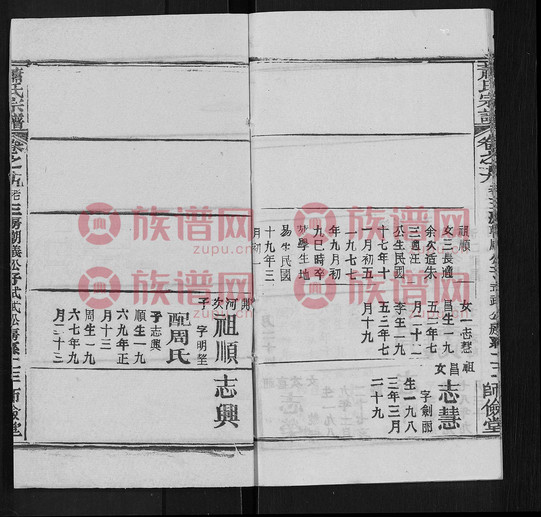 蕭氏宗譜
卷之十九
師儉堂
祖順
女三長適
余次適朱
三適汪
公生民國
十七年十
一月初五
一九七七
年九月初
九巳時卒
學生地
易生民國
十九年三
月初一
女一志慧
昌生一九
五四年七
月二十一
李生一九
五三年七
月十九
祖昌女
志慧
字劍麗
生一九八
三年三月
二十九
蕭氏宗譜
卷之十九
師儉堂
興河次子
祖順
字明笙
配周氏
子志興
順生一九
六九年正
月十三
周生一九
六七年九
月二十三
志興
族谱网
zupu.cn
族谱网
zupu.cn
族谱网
zupu.cn
族谱网
zupu.cn